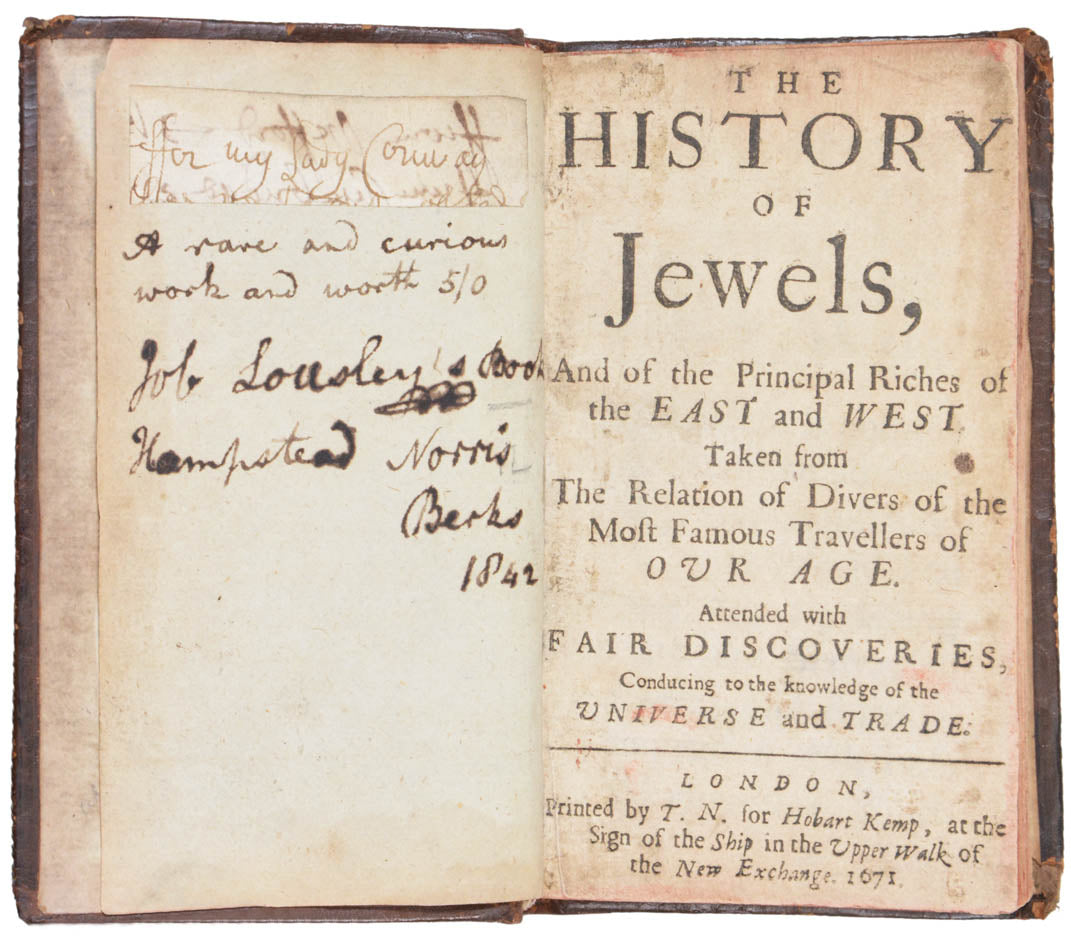 ffor my Lady Conway
A rare and curious
work and worth 5/0
Job Lousley's Book
Hampstead Norris
Berks
1842
THE
HISTORY
OF
Jewels,
And of the Principal Riches of
the EAST and WEST.
Taken from
The Relation of Divers of the
Moſt Famous Travellers of
OVR AGE.
Attended with
FAIR DISCOVERIES,
Conducing to the knowledge of the
UNIVERSE and TRADE.
LONDON,
Printed by T. N. for Hobart Kemp, at the
Sign of the Ship in the Upper Walk of
the New Exchange. 1671.